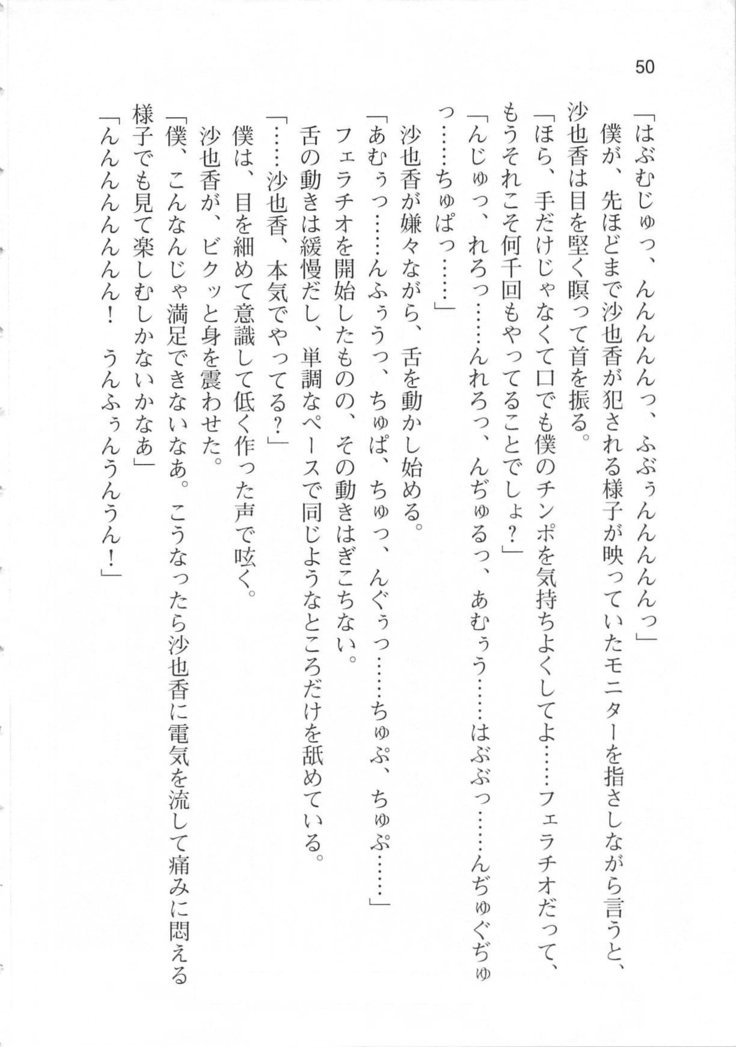 50
「はぶむじゅっ、んんんんんっ、ふぶぅんんんんんっ」
僕が、先ほどまで沙也香が犯される様子が映っていたモニターを指さしながら言うと、
沙也香は目を堅く瞑って首を振る。
「ほら、手だけじゃなくて口でも僕のチンポを気持ちよくしてよ……フェラチオだって、
もうそれこそ何千回もやってることでしょ？」
「んじゅっ、れろっ……んれろっ、んぢゅるっ、あむぅう……はぶぶっ……んぢゅぐぢゅ
っ……ちゅぱっ……」
沙也香が嫌々ながら、舌を動かし始める。
「あむぅっ……んふぅうっ、ちゅぱ、ちゅっ、んぐぅっ……ちゅぷ、ちゅぷ……」
フェラチオを開始したものの、その動きはぎこちない。
舌の動きは緩慢だし、単調なペースで同じようなところだけを舐めている。
「……沙也香、本気でやってる？」
僕は、目を細めて意識して低く作った声で呟く。
沙也香が、ビクッと身を震わせた。
「僕、こんなんじゃ満足できないなあ。こうなったら沙也香に電気を流して痛みに悶える
様子でも見て楽しむしかないかなあ」
「んんんんんんんん！　うんふぅんうんうん！」